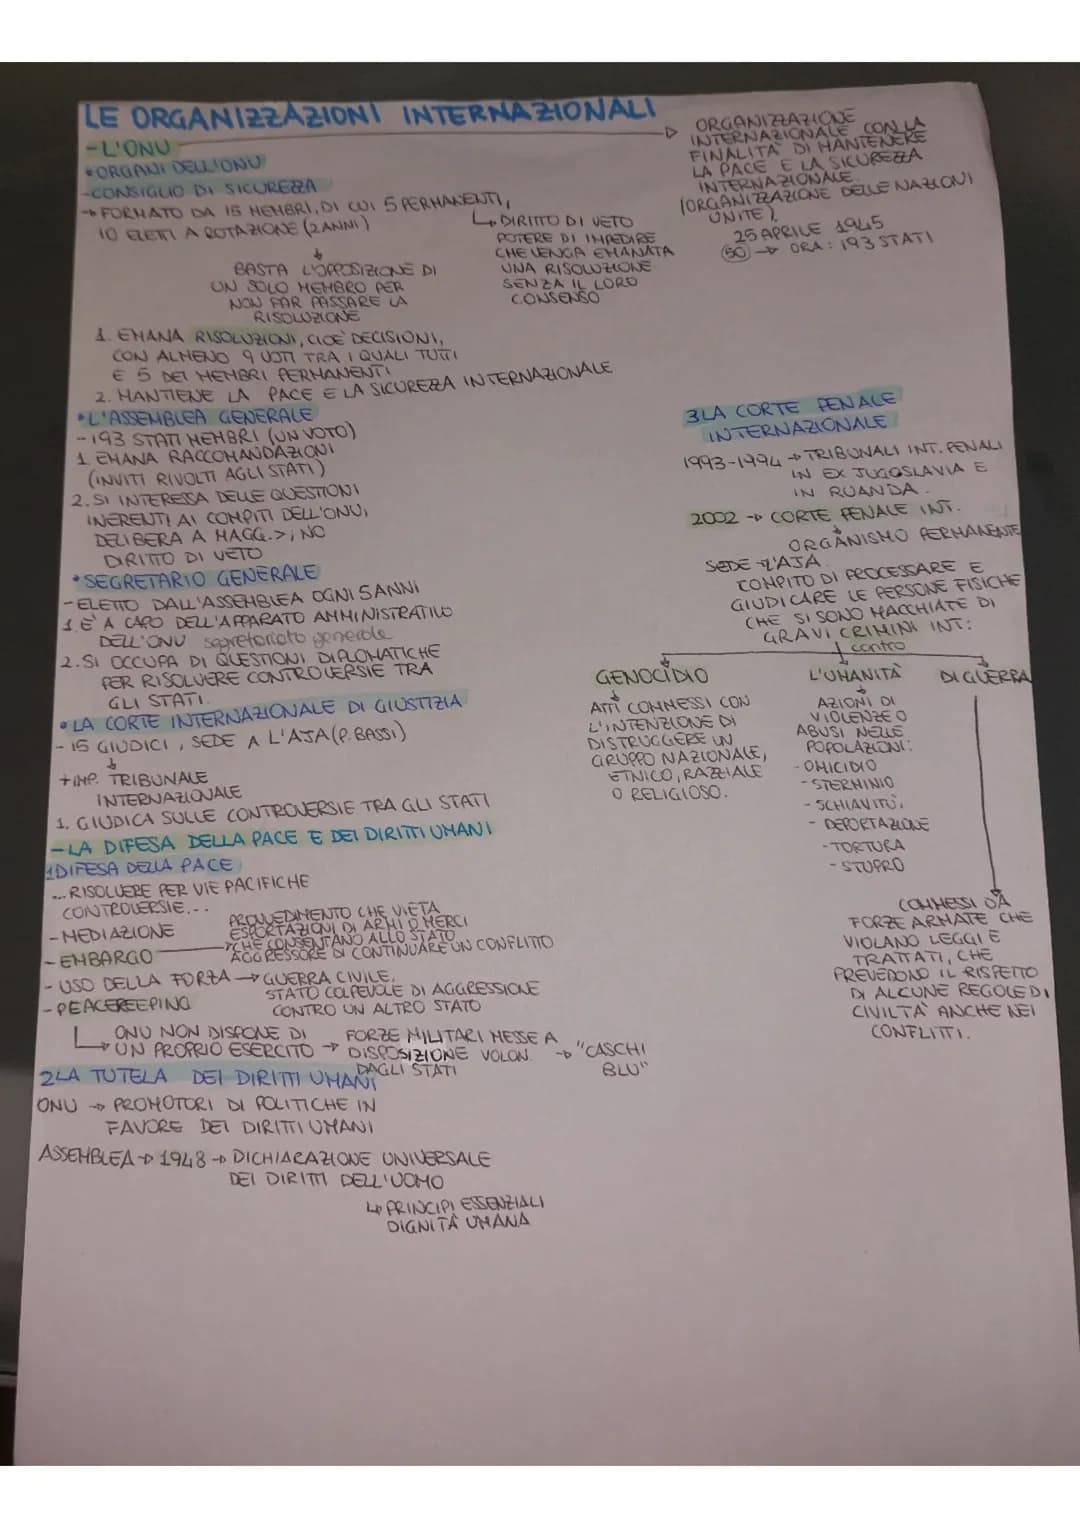 LE ORGANIZZAZIONI INTERNAZIONALI
-L'ONU
ORGANIZZAZIONE
INTERNAZIONALE CON LA
FINALITÀ DI MANTENERE
LA PACE E LA SICUREZZA
INTERNAZIONALE.
(ORGANIZZAZIONE DELLE NAZIONI
UNITE)
25 APRILE 1945
50 → ORA: 193 STATI
•ORGANI DELL'ONU
-CONSIGLIO DI SICUREZZA
→ FORMATO DA 15 MEMBRI, DI CUI 5 PERMANENTI,
10 ELETTI A ROTAZIONE (2 ANNI)
↳ DIRITTO DI VETO
POTERE DI IMPEDIRE
CHE VENGA EMANATA
UNA RISOLUZIONE
SENZA IL LORO
CONSENSO
BASTA L'OPPOSIZIONE DI
UN SOLO MEMBRO PER
NON FAR PASSARE LA
RISOLUZIONE
1. EMANA RISOLUZIONI, CIOÈ DECISIONI,
CON ALMENO 9 VOTI TRA I QUALI TUTTI
E 5 DEI MEMBRI PERMANENTI
2. MANTIENE LA PACE E LA SICUREZZA INTERNAZIONALE
•L'ASSEMBLEA GENERALE
-193 STATI MEMBRI (UN VOTO)
1. EMANA RACCOMANDAZIONI
(INVITI RIVOLTI AGLI STATI)
2. SI INTERESSA DELLE QUESTIONI
INERENTI AI COMPITI DELL'ONU,
DELIBERA A MAGG.>; NO
DIRITTO DI VETO
•SEGRETARIO GENERALE
-ELETTO DALL'ASSEMBLEA OGNI 5 ANNI
1. È A CAPO DELL'APPARATO AMMINISTRATIVO
DELL'ONU segretariato generale
2. SI OCCUPA DI QUESTIONI DIPLOMATICHE
PER RISOLVERE CONTROVERSIE TRA
GLI STATI.
•LA CORTE INTERNAZIONALE DI GIUSTIZIA
- 15 GIUDICI, SEDE A L'AJA (P. BASSI)
+ IMP. TRIBUNALE
INTERNAZIONALE
1. GIUDICA SULLE CONTROVERSIE TRA GLI STATI
-LA DIFESA DELLA PACE E DEI DIRITTI UMANI
1 DIFESA DELLA PACE
... RISOLVERE PER VIE PACIFICHE
CONTROVERSIE...
- MEDIAZIONE
- EMBARGO
PROVVEDIMENTO CHE VIETA
ESPORTAZIONI DI ARMI O MERCI
CHE CONSENTANO ALLO STATO
AGGRESSORE DI CONTINUARE UN CONFLITTO
- USO DELLA FORZA → GUERRA CIVILE.
STATO COLPEVOLE DI AGGRESSIONE
CONTRO UN ALTRO STATO
- PEACEKEEPING
↳ ONU NON DISPONE DI
UN PROPRIO ESERCITO → FORZE MILITARI MESSE A
DISPOSIZIONE VOLON.
DAGLI STATI
→ "CASCHI
BLU"
2 LA TUTELA DEI DIRITTI UMANI
ONU → PROMOTORI DI POLITICHE IN
FAVORE DEI DIRITTI UMANI
ASSEMBLEA → 1948 → DICHIARAZIONE UNIVERSALE
DEI DIRITTI DELL'UOMO
↳ PRINCIPI ESSENZIALI
DIGNITÀ UMANA
3 LA CORTE PENALE
INTERNAZIONALE
1993-1994 → TRIBUNALI INT. PENALI
IN EX JUGOSLAVIA E
IN RUANDA.
2002 → CORTE PENALE INT.
ORGANISMO PERMANENTE
SEDE L'AJA.
COMPITO DI PROCESSARE E
GIUDICARE LE PERSONE FISICHE
CHE SI SONO MACCHIATE DI
GRAVI CRIMINI INT:
contro
GENOCIDIO
ATTI COMMESSI CON
L'INTENZIONE DI
DISTRUGGERE UN
GRUPPO NAZIONALE,
ETNICO, RAZZIALE
O RELIGIOSO.
L'UMANITÀ
AZIONI DI
VIOLENZE O
ABUSI NELLE
POPOLAZIONI:
- OMICIDIO
- STERMINIO
- SCHIAVITÙ,
- DEPORTAZIONE
- TORTURA
- STUPRO
DI GUERRA
COMMESSI DA
FORZE ARMATE CHE
VIOLANO LEGGI E
TRATTATI, CHE
PREVEDONO IL RISPETTO
DI ALCUNE REGOLE DI
CIVILTÀ ANCHE NEI
CONFLITTI.